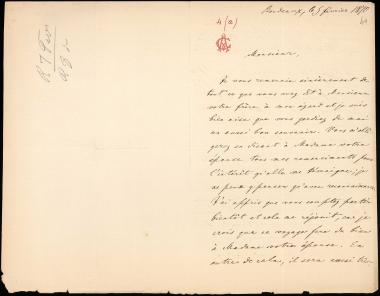 Bordeaux, le 5 février 18
4 (a)
Monsieur,
Je vous remercie sincèrement de
tout ce que vous avez dit à Monsieur
votre frère à mon égard et je suis
bien aise que vous gardiez de moi
un aussi bon souvenir. Vous m'obli
gerez en disant à Madame votre
épouse tous mes remerciments pour
l'intérêt qu'elle me témoigne; je
ne peux y penser qu'avec reconnaissance.
J'ai appris que vous comptez partir
bientôt et cela me réjouit, car je
crois que ce voyage fera du bien
à Madame votre épouse. En
outre de cela, il sera aussi très